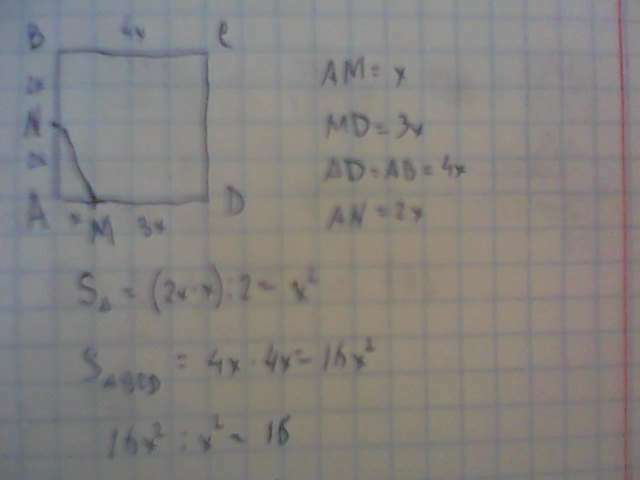 B 4x C
2x
N
2x
A x M 3x D
AM = x
MD = 3x
AD = AB = 4x
AN = 2x
S△ = (2x·x):2 = x²
S ABCD = 4x · 4x = 16x²
16x² : x² = 16